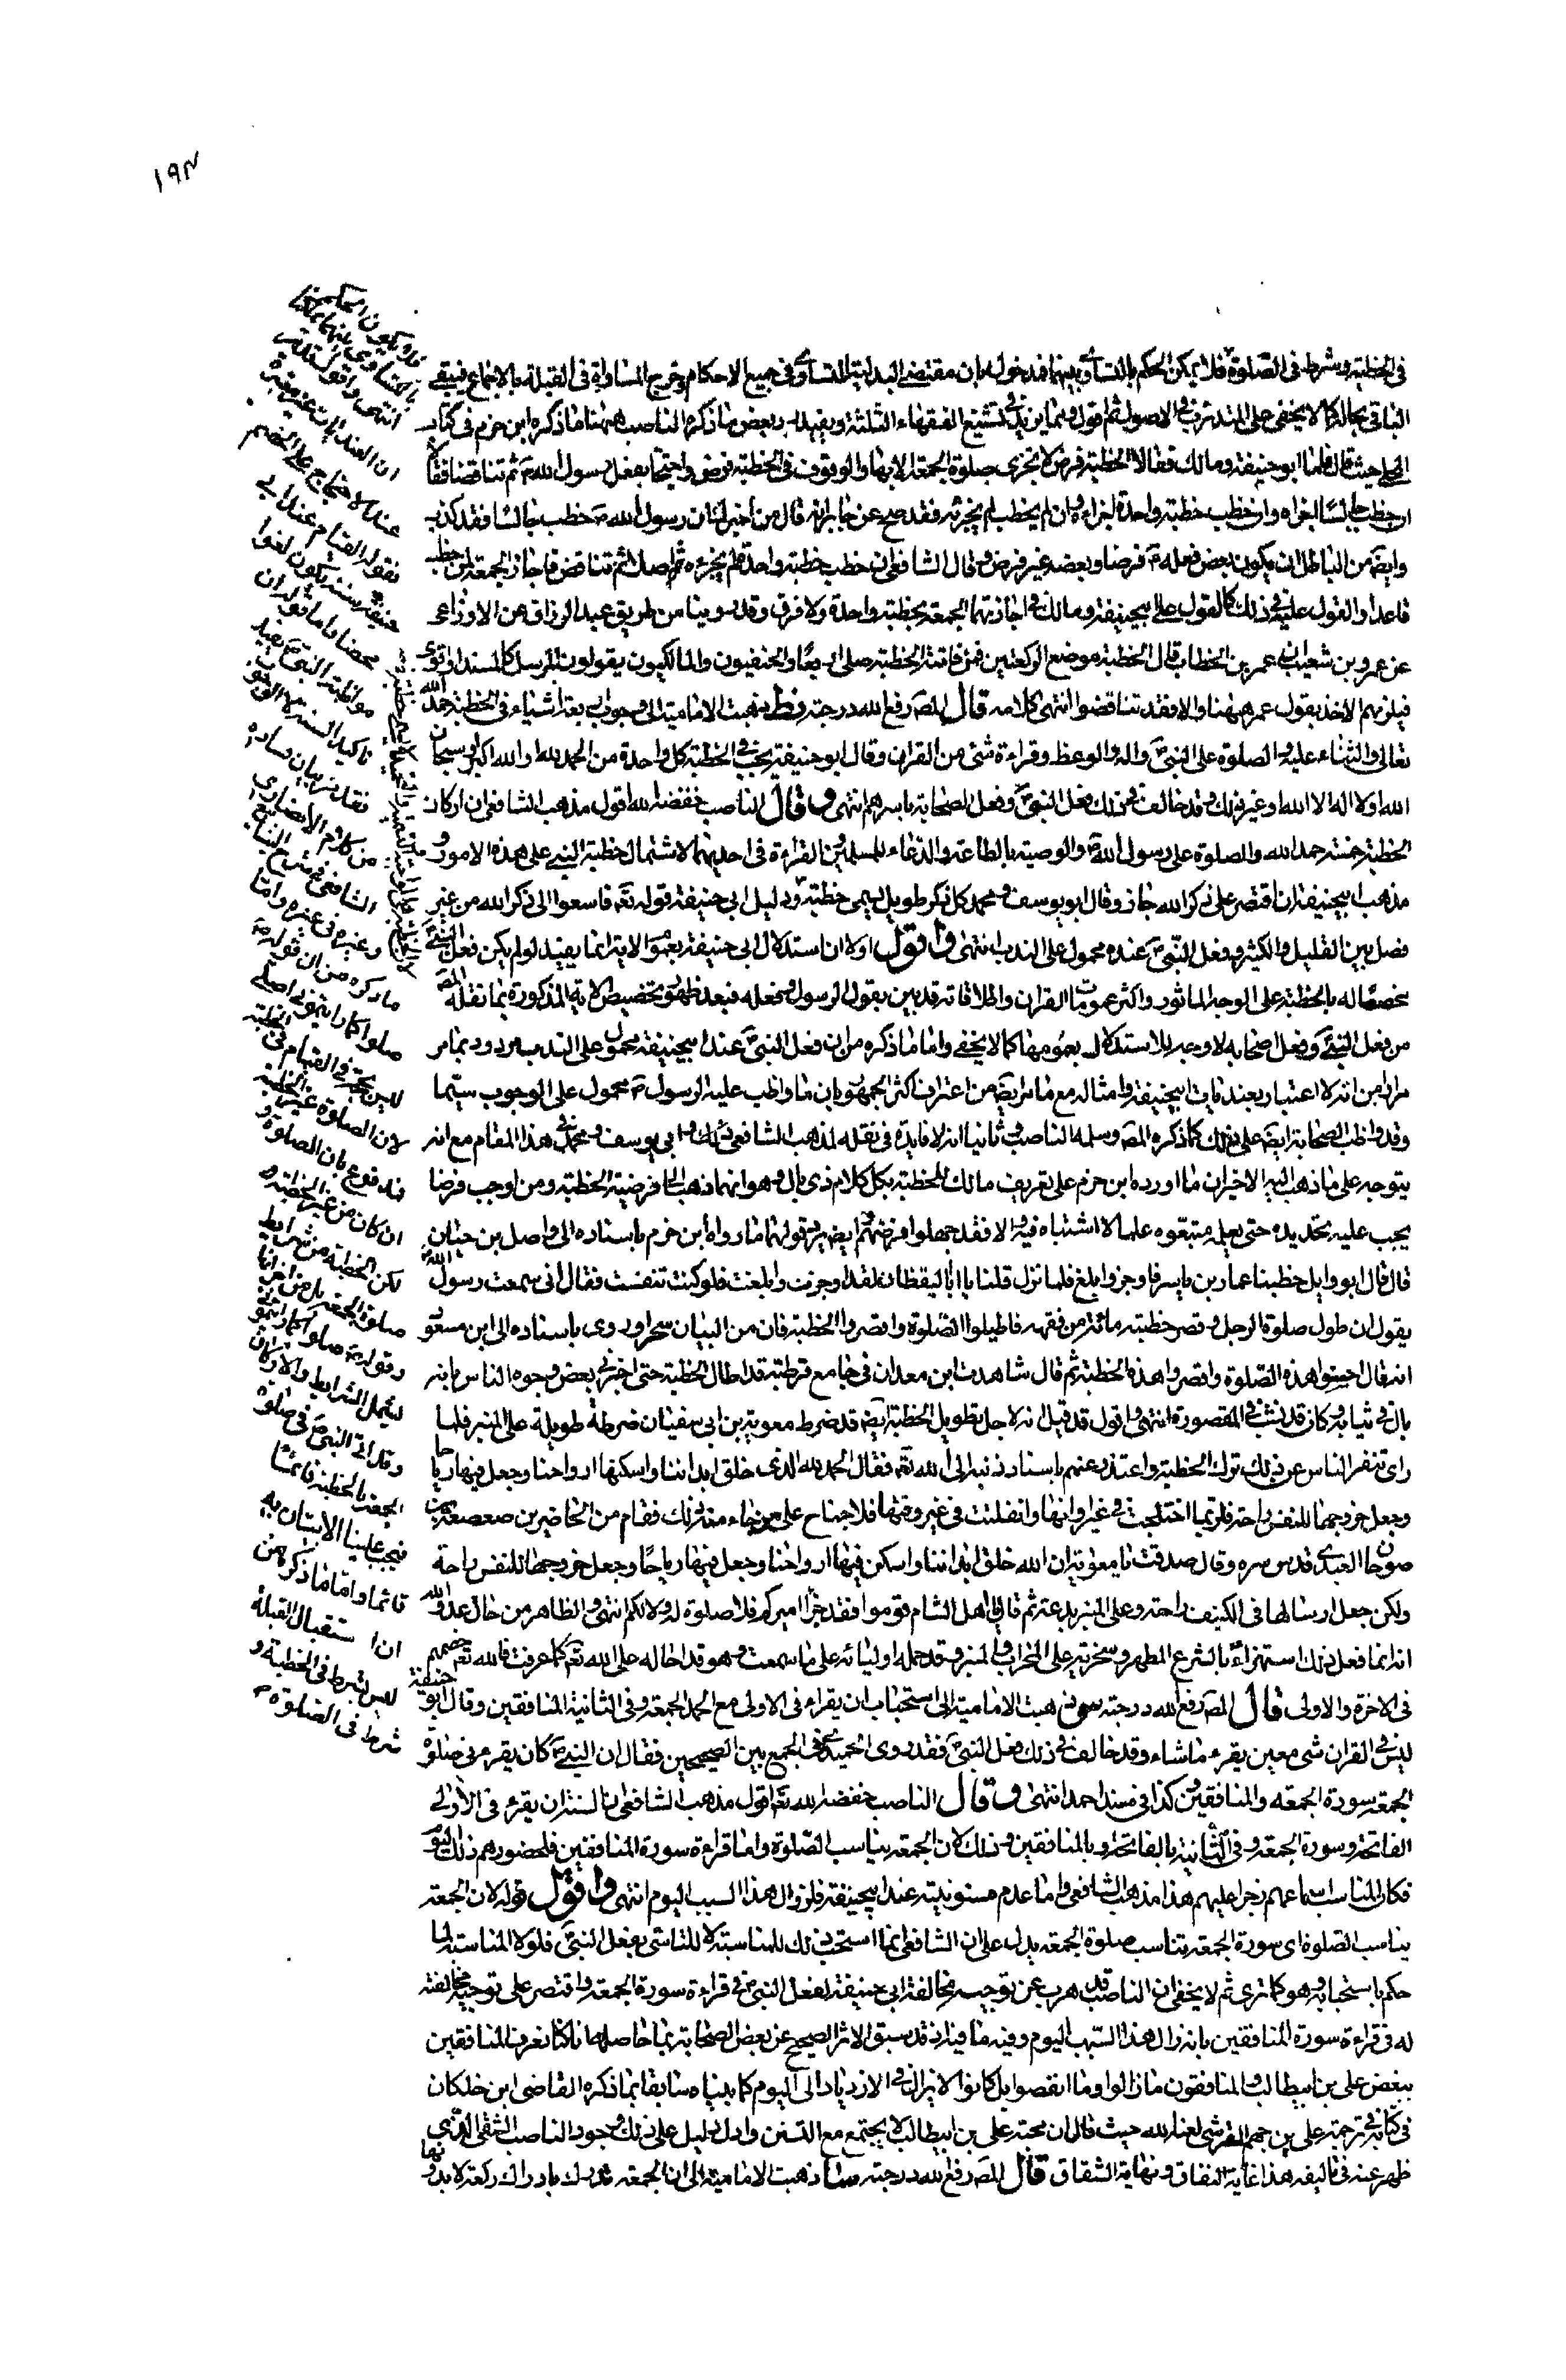 ١٩٣
في الخطبة وشرط في الصلوة فلا يمكن الحكم بالتساوي بينهما فدخوله بان مقتضى البدلية التساوي في جميع الاحكام وخرج المساواة في القبلة بالاجماع فيبقى
الباقي بحاله كما لا يخفى على المتدرب في الاصول ثم اقول ومما يزيد في تشنيع الفقهاء الثلثة ويفيد بعض ما ذكره الناصب ههنا ما ذكره ابن حزم في كتاب
المحلى حيث قال فاما ابو حنيفة ومالك فقالا الخطبة فرض لا تجزى صلوة الجمعة الا بها والوقوف في الخطبة فرض واحتجا بفعل رسول الله ص ثم تناقضا فقالا
ان خطب جالسا اجزاه وان خطب خطبة واحدة اجزاه وان لم يخطب لم يجزئه فقد صح عن جابر انه قال من اخبرك ان رسول الله ص خطب جالسا فقد كذب
وايضا من الباطل ان يكون بعض فعله ص فرضا وبعضه غير فرض وقال الشافعي ان خطب خطبة واحدة لم يجزءه ثم تناقض فاجاز الجمعة لمن خطب
قاعدا والقول عليه في ذلك كالقول على ابيحنيفة ومالك في اجازتهما الجمعة بخطبة واحدة ولا فرق وقد روينا من طريق عبد الرزاق عن الاوزاعي
عن عمرو بن شعيب ان عمر بن الخطاب قال الخطبة موضع الركعتين فمن فاتته الخطبة صلى اربعا والحنفيون والمالكيون يقولون المرسل كالمسند واقوى
فيلزمهم الاخذ بقول عمر ههنا والا فقد تناقضوا انتهى كلامه قال المص رفع الله درجته ذهبت الامامية الى وجوب اربعة اشياء في الخطبة حمد الله
تعالى والثناء عليه والصلوة على النبي ص واله والوعظ وقراءة شئ من القران وقال ابو حنيفة يجب في الخطبة كل واحدة من الحمد لله او الله اكبر او سبحان
الله او لا اله الا الله او غير ذلك وقد خالف في ذلك فعل النبي ص وفعل الصحابة باسرهم انتهى وقال الناصب خفضه الله اقول مذهب الشافعي ان اركان
الخطبة خمسة حمد الله والصلوة على رسول الله ص والوصية بالطاعة والدعاء للمسلمين والقراءة في احديهما لاشتمال خطبة النبي على هذه الامور و
مذهب ابيحنيفة ان اقتصر على ذكر الله جاز وقال ابو يوسف ومحمد كل ذكر طويل يسمى خطبة ودليل ابي حنيفة قوله تع فاسعوا الى ذكر الله من غير
فصل بين القليل والكثير وفعل النبي ص عنده محمول على الندب انتهى واقول اولا ان استدلال ابي حنيفة بعموم الاية انما يفيد لو لم يكن فعل النبي ص
مخصصا له بالخطبة على الوجه الماثور واكثر عمومات القران واطلاقاته قد بين بقول الرسول وفعله فبعد ظهور تخصيص الاية المذكورة بما نقله المص
من فعل النبي ص وفعل اصحابه لا وجه للاستدلال بعمومها كما لا يخفى واما ما ذكره من ان فعل النبي ص عند ابيحنيفة محمول على الندب مردود بما مر
مرارا من انه لا اعتبار بعنديات ابيحنيفة وامثاله مع ما مر ايضا من اعتراف اكثر الجمهور بان ما واظب عليه الرسول ص محمول على الوجوب سيما
وقد واظب الصحابة ايضا على ذلك كما ذكره المص وسلمه الناصب وثانيا انه لا فايدة في نقله لمذهب الشافعي ومالك وابي يوسف ومحمد في هذا المقام مع انه
يتوجه على ما ذهب اليه الاخيران ما اورده ابن حزم على تعريف مالك للخطبة بكل كلام ذي بال وهو انهما ذهبا الى فرضية الخطبة ومن اوجب فرضا
يجب عليه تحديده حتى يعلمه متبعوه علما لا اشتباه فيه والا فقد جهلوا فرضهم ايضا يرد قولهما ما رواه ابن حزم باسناده الى واصل بن حيان
قال قال ابو وايل خطبنا عمار بن ياسر فاوجز وابلغ فلما نزل قلنا يا ابا اليقظان لقد اوجزت وابلغت فلو كنت تنفست فقال اني سمعت رسول الله ص
يقول ان طول صلوة الرجل وقصر خطبته مائنة من فقهه فاطيلوا الصلوة واقصروا الخطبة فان من البيان سحرا وروى باسناده الى ابن مسعود
انه قال احسنوا هذه الصلوة واقصروا هذه الخطبة ثم قال شاهدت ابن معدان في جامع قرطبة قد اطال الخطبة حتى اخبرني بعض وجوه الناس بانه
بال في ثيابه وكان قد نشب في المقصورة انتهى واقول قد قيل انه لاجل تطويل الخطبة ايضا قد ضرط معوية بن ابي سفيان ضرطة طويلة على المنبر فلما
راى تنفر الناس عن ذلك ترك الخطبة واعتذر عنهم باسناد ذنبه الى الله تع فقال الحمد لله الذي خلق ابداننا واسكنها ارواحنا وجعل فيها رياحا
وجعل خروجها للنفس راحة فلربما اختلجت في غير اوانها وانفلتت في غير وقتها فلا جناح على من جاء منه ذلك فقام من الحاضرين صعصعة بن
صوحان العبدي قدس سره وقال صدقت يا معوية ان الله خلق ابداننا واسكن فيها ارواحنا وجعل فيها رياحا وجعل خروجها للنفس راحة
ولكن جعل ارسالها في الكنيف راحة وعلى المنبر بدعة ثم قال يا اهل الشام قوموا فقد خرا اميركم فلا صلوة له ولا لكم انتهى والظاهر من حال عدو الله
انه انما فعل ذلك استهزاء بالشرع المطهر وسخرية على المحراب والمنبر وقد حمله اوليائه على ما سمعت وهو قد احاله على الله تع كما عرفت فالله تع خصمهم
في الاخرة والاولى قال المص رفع الله درجته ذهبت الامامية الى استحباب ان يقراء في الاولى مع الحمد الجمعة وفي الثانية المنافقين وقال ابو حنيفة
ليس في القران شئ معين يقرء ما شاء وقد خالف في ذلك فعل النبي ص فقد روى الحميدي في الجمع بين الصحيحين فقال ان النبي ص كان يقرء في صلوة
الجمعة سورة الجمعة والمنافقين وكذا في مسند احمد انتهى وقال الناصب خفضه الله تع اقول مذهب الشافعي ان السنة ان يقرء في الاولى
الفاتحة وسورة الجمعة وفي الثانية بالفاتحة وبالمنافقين وذلك لان الجمعة يناسب الصلوة واما قراءة سورة المنافقين فلحضورهم ذلك اليوم
فكان المناسب اسماعهم زجرا عليهم هذا مذهب الشافعي واما عدم مسنونيته عند ابيحنيفة فلزوال هذا السبب اليوم انتهى واقول قوله لان الجمعة
يناسب الصلوة اي سورة الجمعة يناسب صلوة الجمعة يدل على ان الشافعي انما استحب ذلك للمناسبة لا للتاسي بفعل النبي ص فلولا المناسبة لما
حكم باستحبابه وهو كما ترى ثم لا يخفى ان الناصب قد هرب عن توجيه مخالفة ابي حنيفة لفعل النبي ص في قراءة سورة الجمعة واقتصر على توجيه مخالفته
له في قراءة سورة المنافقين بانه زال هذا السبب اليوم وفيه ما فيه اذ قد سبق الاثر الصحيح عن بعض الصحابة بما حاصله انا كنا نعرف المنافقين
ببغض علي بن ابيطالب والمنافقون ما زالوا وما انقصوا بل كانوا لا يزال في الازدياد الى اليوم كما بيناه سابقا بما ذكره القاضي ابن خلكان
في كتابه في ترجمة علي بن جهم القرشي لعنه الله حيث قال ان محبة علي بن ابيطالب لا يجتمع مع التسنن وادل دليل على ذلك وجود الناصب الشقي الذي
ظهر عنه في تاليفه هذا غاية النفاق ونهاية الشقاق قال المص رفع الله درجته ذهبت الامامية الى ان الجمعة تدرك بادراك ركعة لا بدونها
انتهى واقول
عند الاحتجاج على الخصم
محضا واما قوله ان
مواظبة النبي ص يفيد
تاكيد السنة لا الوجوب
من كلام الانصاري
الشافعي في شرح
وغيره في غيره واما
ما ذكره من ان قوله ص
صلوا كما رايتموني اصلي
ليس بحجة في القيام في الخطبة
لان الصلوة غير الخطبة
فمدفوع بان الصلوة و
ان كان من غير الخطبة
لكن الخطبة من شرايط
صلوة الجمعة بل من اجزائها
وقوله ص صلوا كما رايتموني
يشمل الشرايط والاركان
وقد اتى النبي ص في صلوة
الجمعة بالخطبة قائما
فيجب علينا الاتيان به
قائما واما ما ذكره من
ان استقبال القبلة
ليس بشرط في الخطبة و
شرط في الصلوة